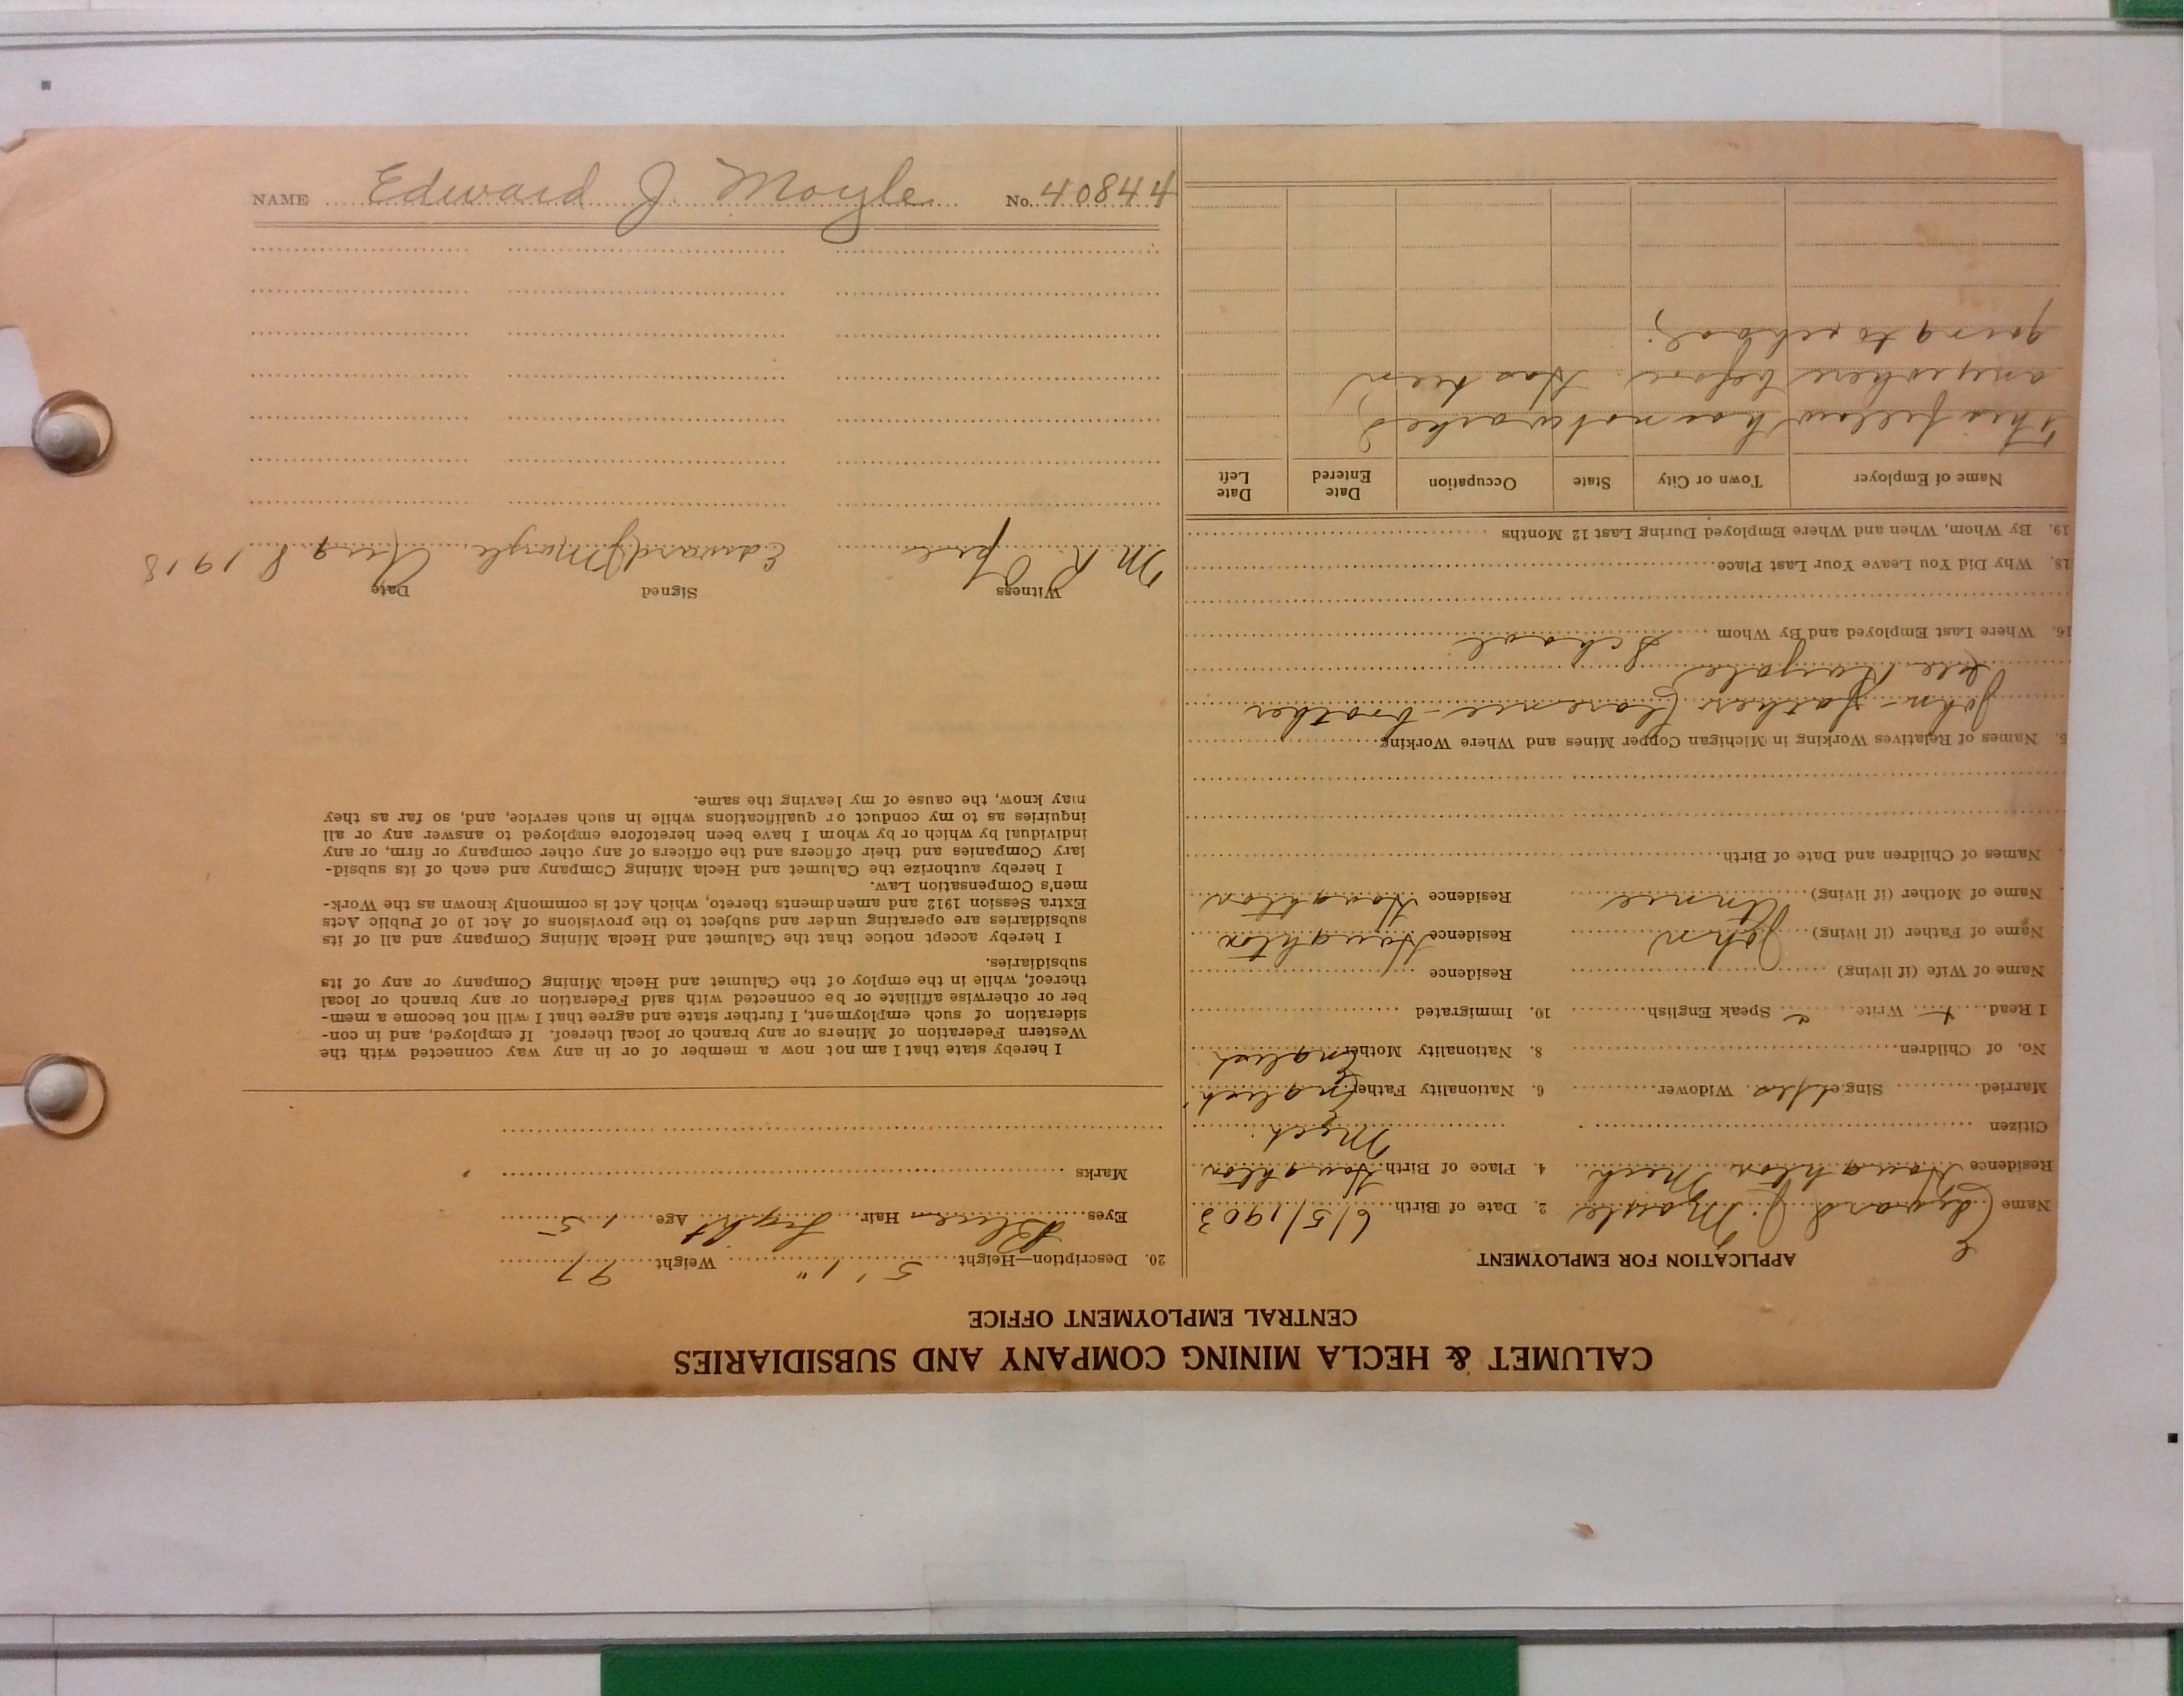 NAME Edward J. Moyle No. 40844
CALUMET & HECLA MINING COMPANY AND SUBSIDIARIES
CENTRAL EMPLOYMENT OFFICE
APPLICATION FOR EMPLOYMENT
Name Edward J. Moyle 2. Date of Birth 6/5/1903
Residence Houghton Mich 4. Place of Birth Houghton
Citizen Mich.
Married Single Yes Widower 6. Nationality Father English
No. of Children 8. Nationality Mother English
I Read Write Speak English 10. Immigrated
Name of Wife (if living) Residence
Name of Father (if living) John Residence Houghton
Name of Mother (if living) Annie Residence Houghton
Names of Children and Date of Birth
5. Names of Relatives Working in Michigan Copper Mines and Where Working
John - father Clarence - brother
Isle Royale
16. Where Last Employed and By Whom School
18. Why Did You Leave Your Last Place
19. By Whom, When and Where Employed During Last 12 Months
Name of Employer Town or City State Occupation Date Entered Date Left
This fellow has not worked
anywhere before. Has been
going to school.
20. Description—Height 5' 1" Weight 97
Eyes Blue Hair Light Age 15
Marks
I hereby state that I am not now a member of or in any way connected with the
Western Federation of Miners or any branch or local thereof. If employed, and in con-
sideration of such employment, I further state and agree that I will not become a mem-
ber or otherwise affiliate or be connected with said Federation or any branch or local
thereof, while in the employ of the Calumet and Hecla Mining Company or any of its
subsidiaries.
I hereby accept notice that the Calumet and Hecla Mining Company and all of its
subsidiaries are operating under and subject to the provisions of Act 10 of Public Acts
Extra Session 1912 and amendments thereto, which Act is commonly known as the Work-
men's Compensation Law.
I hereby authorize the Calumet and Hecla Mining Company and each of its subsid-
iary Companies and their officers and the officers of any other company or firm, or any
individual by which or by whom I have been heretofore employed to answer any or all
inquiries as to my conduct or qualifications while in such service, and, so far as they
may know, the cause of my leaving the same.
Witness Signed Date
M. R. Edward J Moyle Aug 8 1918